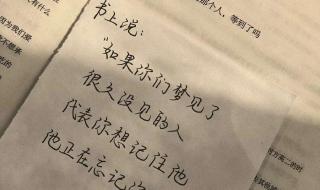 那个人，等到了吗
书上说：
“如果你们梦见了
很久没见的人
代表你想记住他
他正在忘记